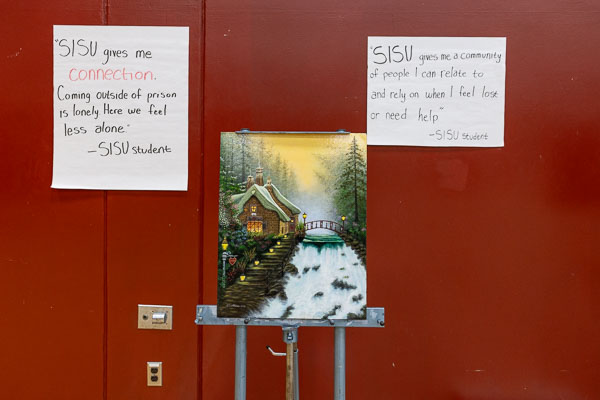 "SISU gives me
connection.
Coming outside of prison
is lonely. Here we feel
less alone."
—SISU student
"SISU gives me a community
of people I can relate to
and rely on when I feel lost
or need help"
—SISU student